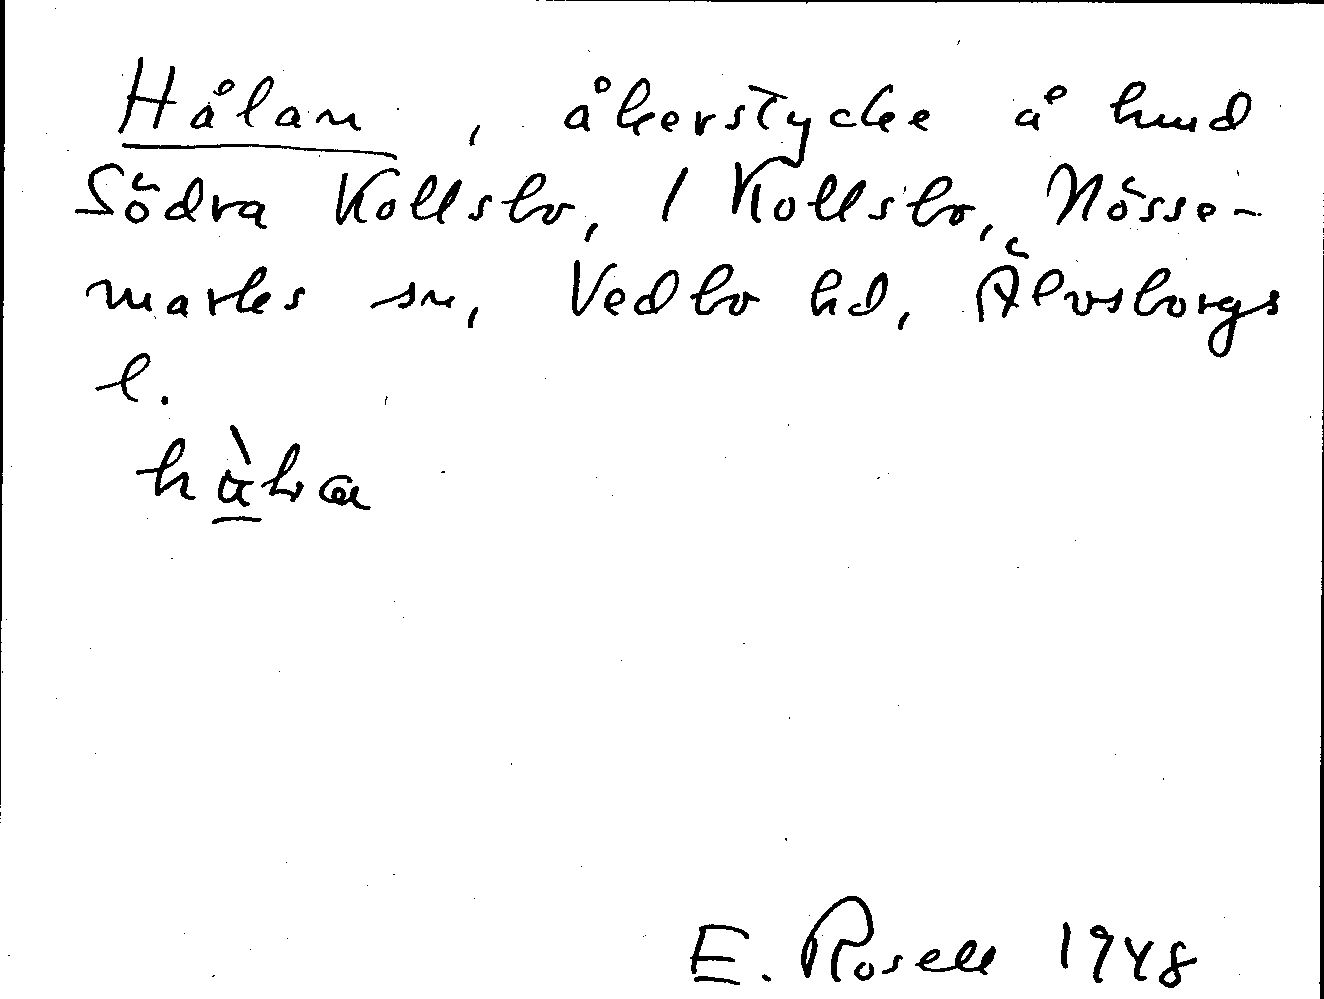 Hålan, åkerstycke å hmd
Södra Kollsbo, 1 Kollsbo, Nösse-
marks sn, Vedbo hd, Älvsborgs
l.
E. Rosell 1948